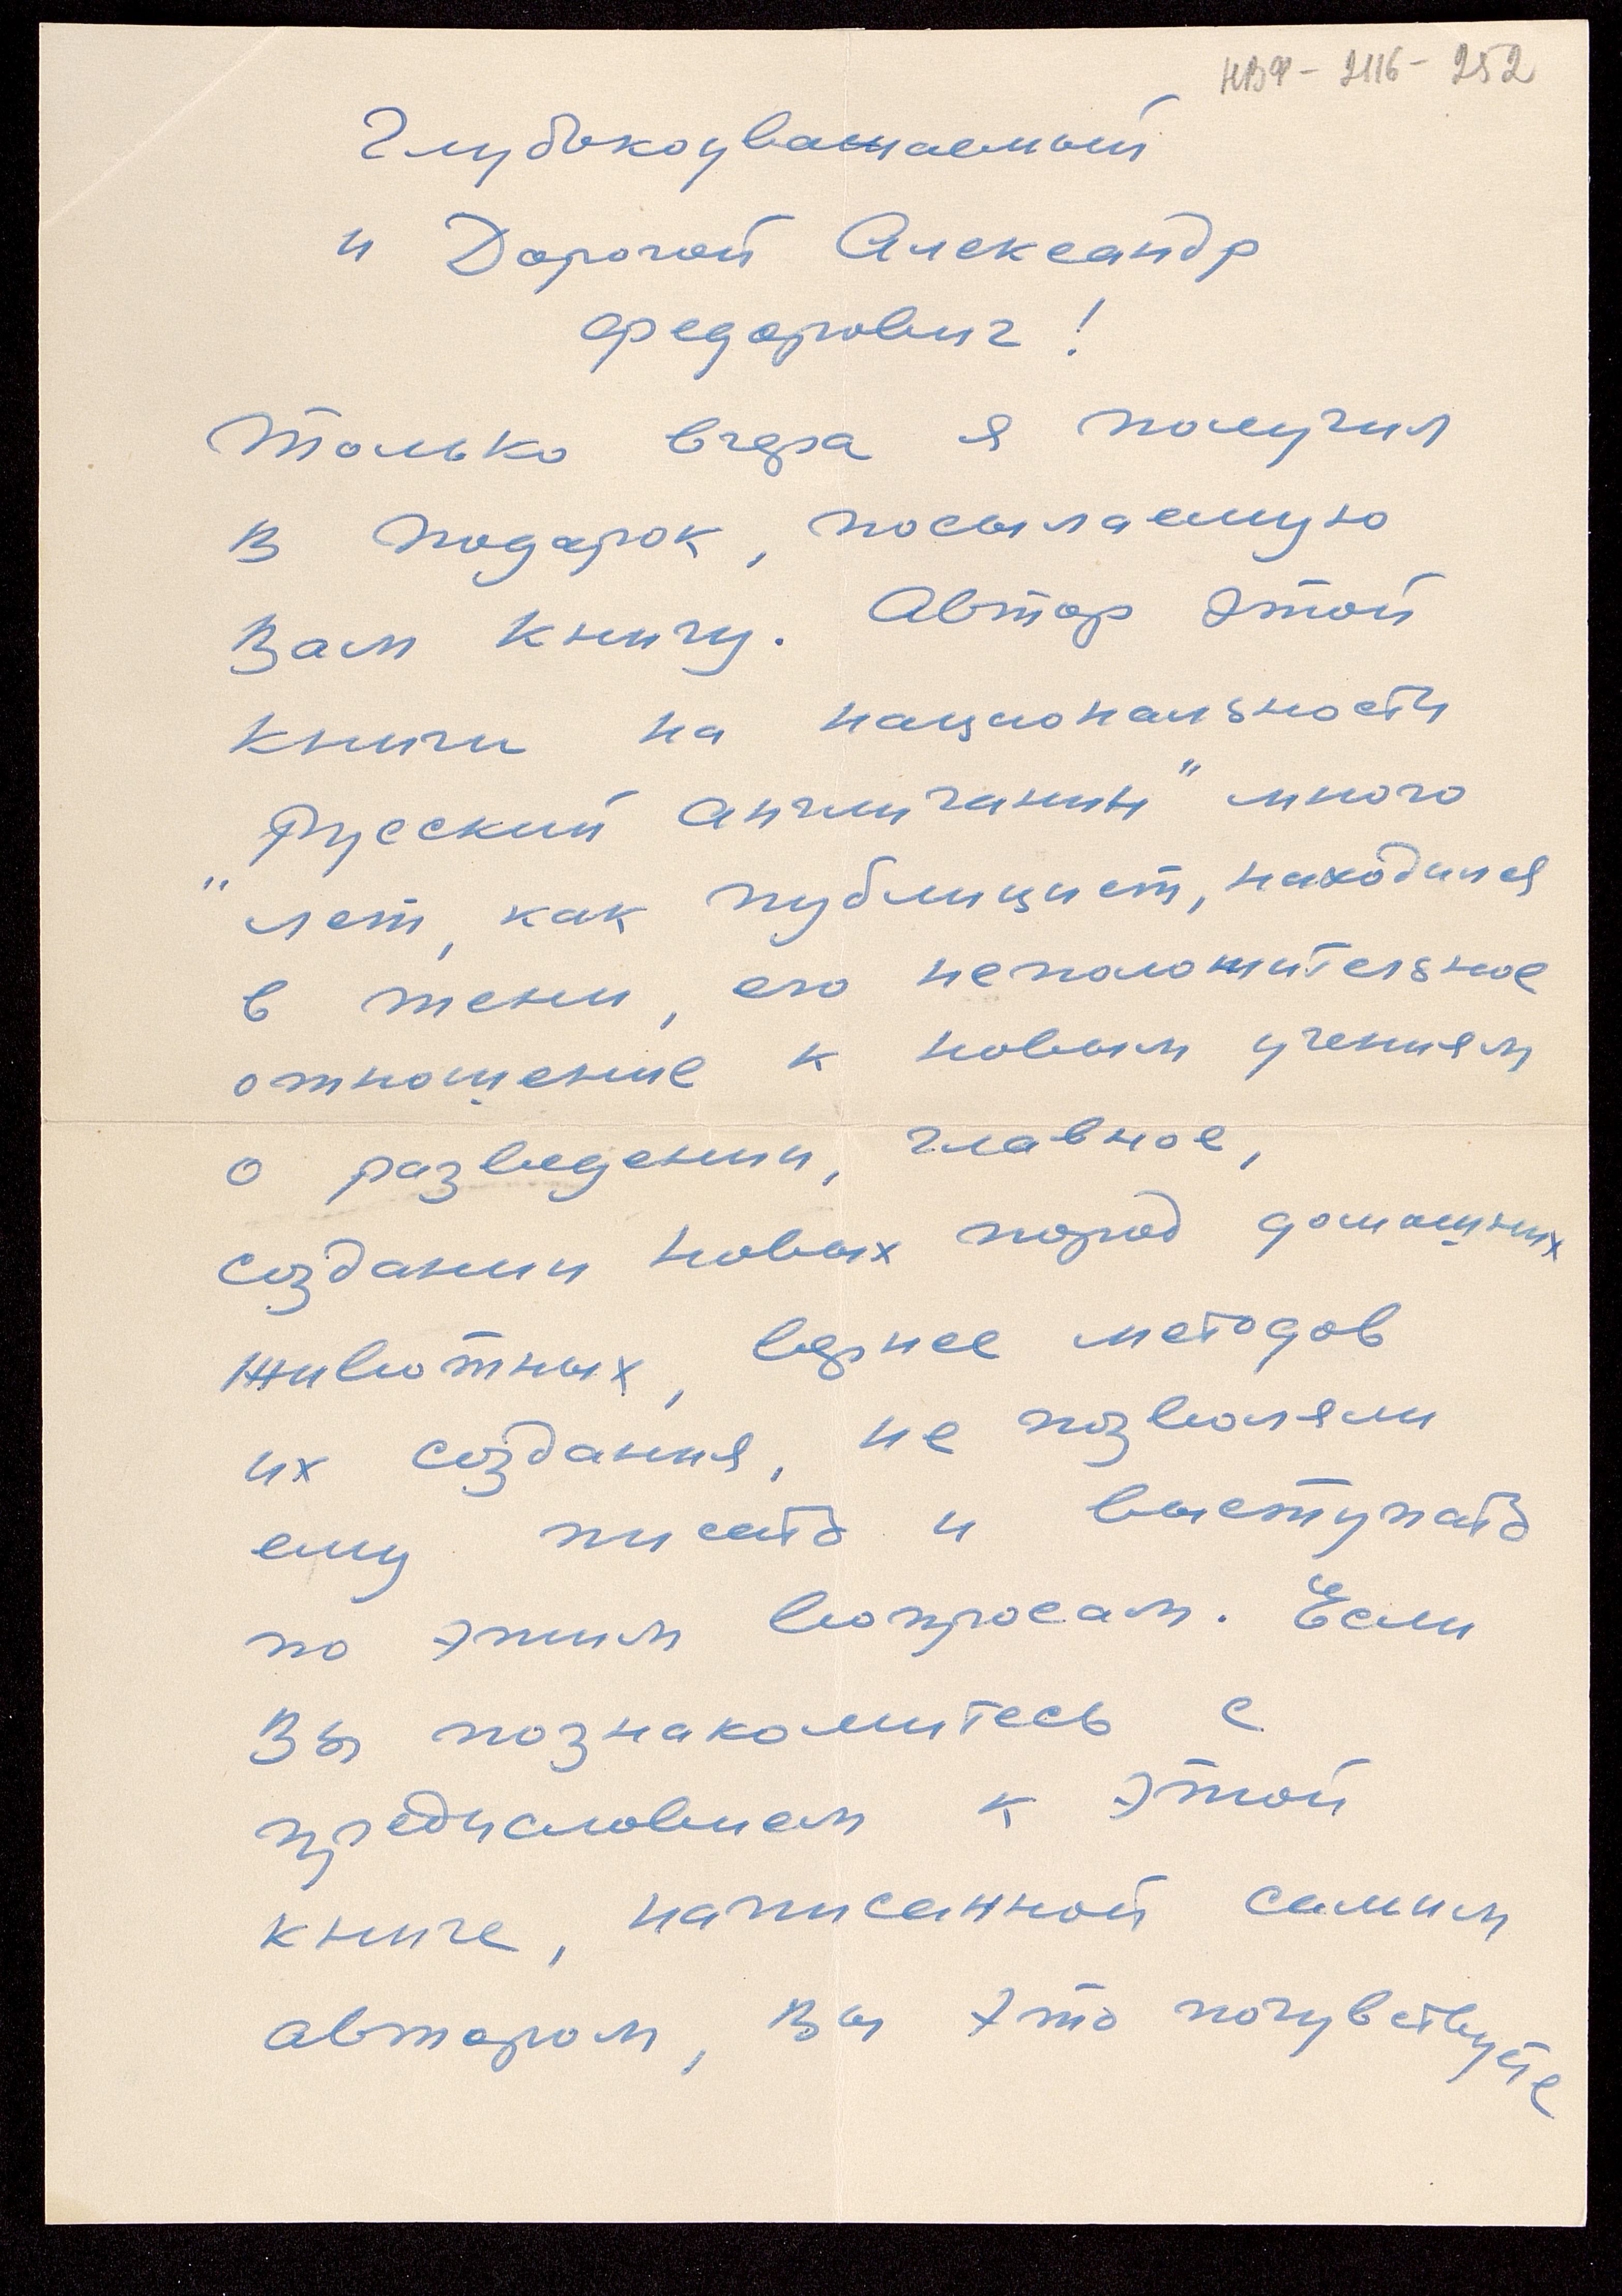 НВФ - 2116 - 252
Глубокоуважаемый
и Дорогой Александр
Федорович!
Только вчера я получил
в подарок, посылаемую
Вам книгу. Автор этой
книги на национальность
"Русский англичанин" много
лет, как публицист, находился
в тени, его неположительное
отношение к новым учениям
о разведении, главное,
создании новых пород домашних
животных, вернее методов
их создания, не позволяли
ему писать и выступать
по этим вопросам. Если
Вы познакомитесь с
предисловием к этой
книге, написанной самим
автором, Вы это почувствуете